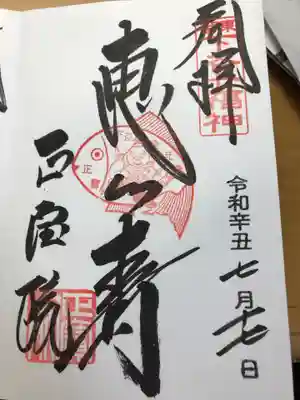 奉拝
令和辛丑 七月十七日
恵比寿
正宝院
福神
正